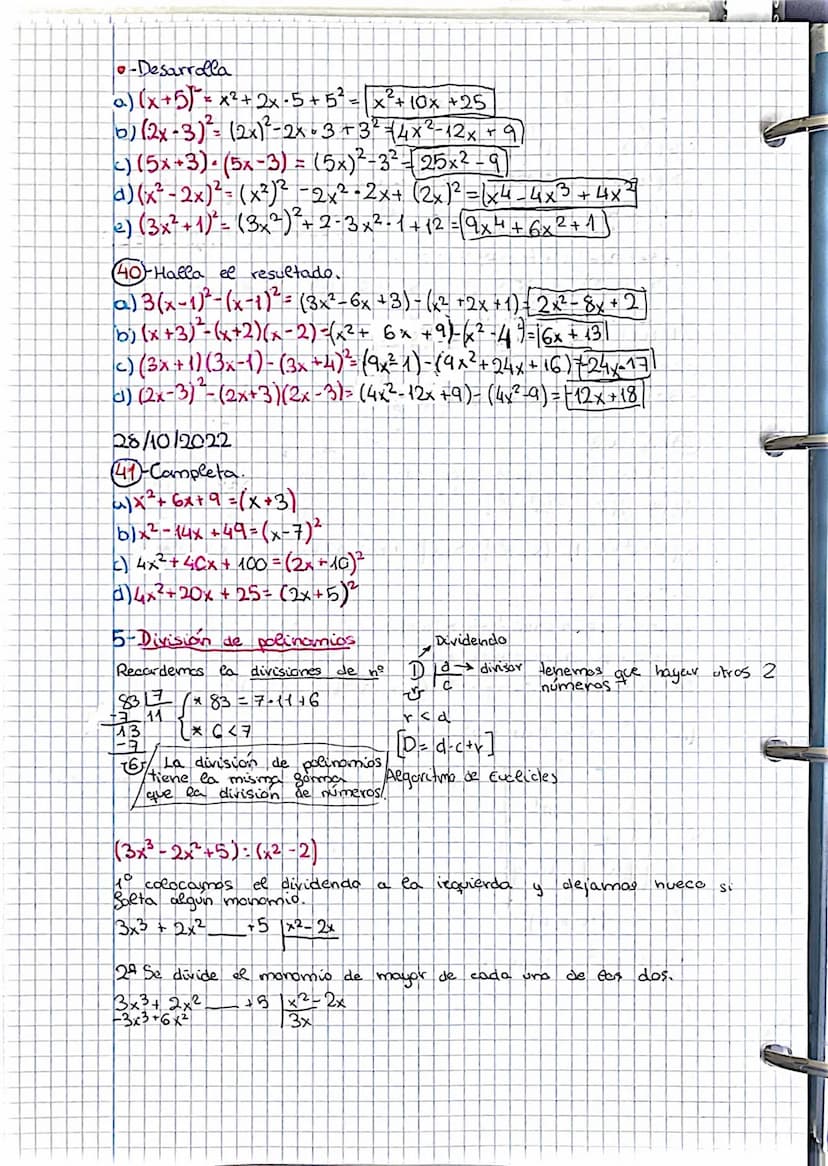 -Desarrolla
a) (x+5)² = x² + 2x · 5 + 5² = x² + 10x + 25
b) (2x-3)² = (2x)² - 2x · 3 + 3² = 4x² - 12x + 9
c) (5x+3) · (5x-3) = (5x)² - 3² = 25x² - 9
d) (x² - 2x)² = (x²)² - 2x² · 2x + (2x)² = x4 - 4x³ + 4x²
e) (3x² + 1)² = (3x²)² + 2 · 3x² · 1 + 12 = 9x4 + 6x² + 1
40-Halla el resultado.
a) 3(x-1)² - (x-1)² = (3x² - 6x + 3) - (x² + 2x + 1) = 2x² - 8x + 2
b) (x+3)² - (x+2)(x-2) = (x² + 6x + 9) - (x² - 4) = 6x + 13
c) (3x+1)(3x-1) - (3x+4)² = (9x² 1) - (9x² + 24x + 16) = -24x-17
d) (2x-3)² - (2x+3)(2x-3) = (4x² - 12x + 9) - (4x² - 9) = -12x + 18
28/10/2022
41-Completa.
a) x² + 6x + 9 = (x+3)
b) x² - 14x + 49 = (x-7)²
c) 4x² + 40x + 100 = (2x+10)²
d) 4x² + 20x + 25 = (2x+5)²
5-División de polinomios
Recordemos la divisiones de nº
83 | 7
-7 11
13
-7
6
* 83 = 7 · 11 + 6
* 6 < 7
Dividendo
D | d → divisor
r c
r < d
[D = d·c+r]
Algoritmo de Euclides
tenemos que hayar otros 2
números
La división de polinomios
tiene la misma forma
que la división de números.
(3x³ - 2x² + 5) : (x² - 2)
1º colocamos el dividendo a la izquierda y dejamos hueco si
falta algun monomio.
3x³ + 2x² ___ +5 | x² - 2x
2º Se divide el monomio de mayor de cada uno de los dos.
3x³ + 2x² ___ +5 | x² - 2x
-3x³ + 6x² 3x